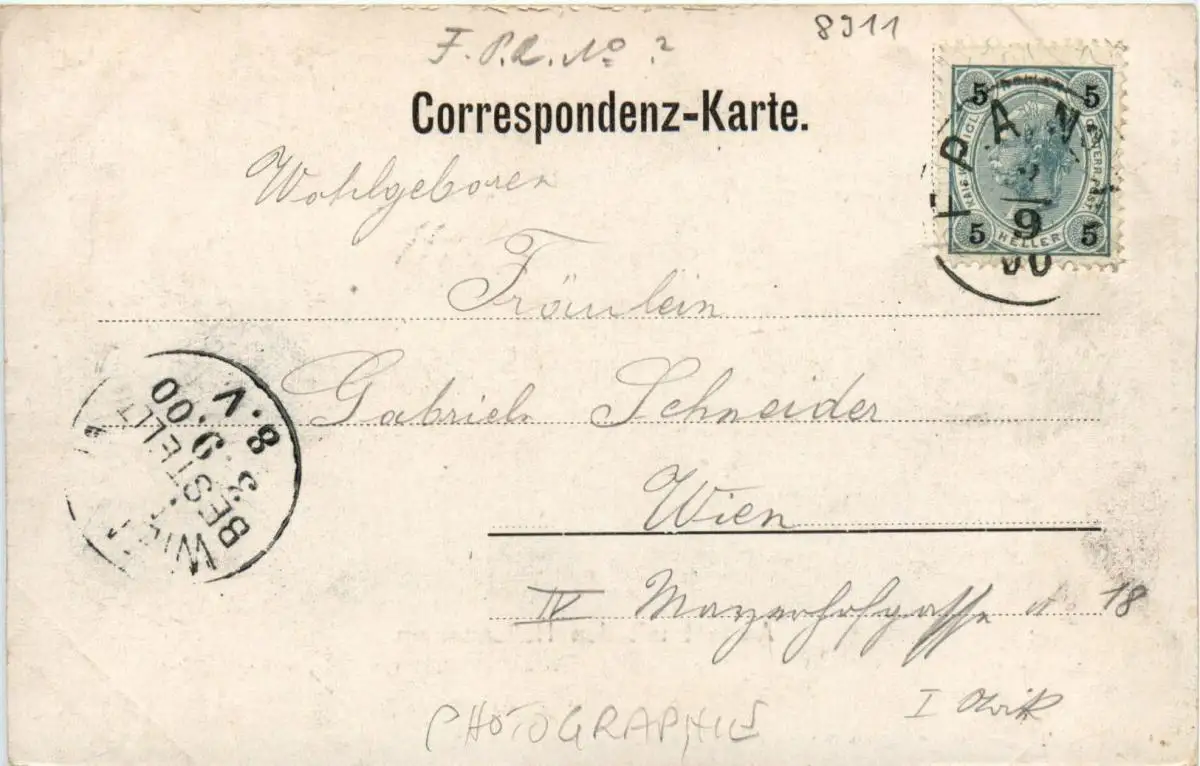 8911
F. P. R. No. 2
Correspondenz-Karte.
5 5
5 HELLER 5
9
00
Wohlgeboren
Fräulein
Gabriele Schneider
Wien
IV Mayerhofgasse No 18
I
8.V
3. 9. 00
BESTELLT
WIEN
PHOTOGRAPHIE